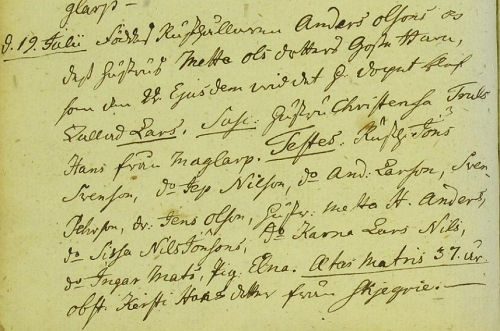 glarp—
d. 19 Julii Föddes Rusthållaren Anders Olsons och
dess Hustrus Metta Ols dotters Gosse Barn,
som den 22 Ejusdem wid det H. dopet blef
Kallad Lars. Susc: Hustru Christensa Truls
Hans från Maglarp. Testes. Rusth: Jöns
Svenson, do Jep Nilson, do And: Larson, Sven
Pehrson, dr: Jens Olson, Hustr: Metta H. Anders,
do Sissa Nils Jönsons, do Karna Lars Nils,
do Ingar Mats, Pig: Elna. Ætas Matris 37. åhr
obst: Kersti Hans dotter från Skjegrie.—